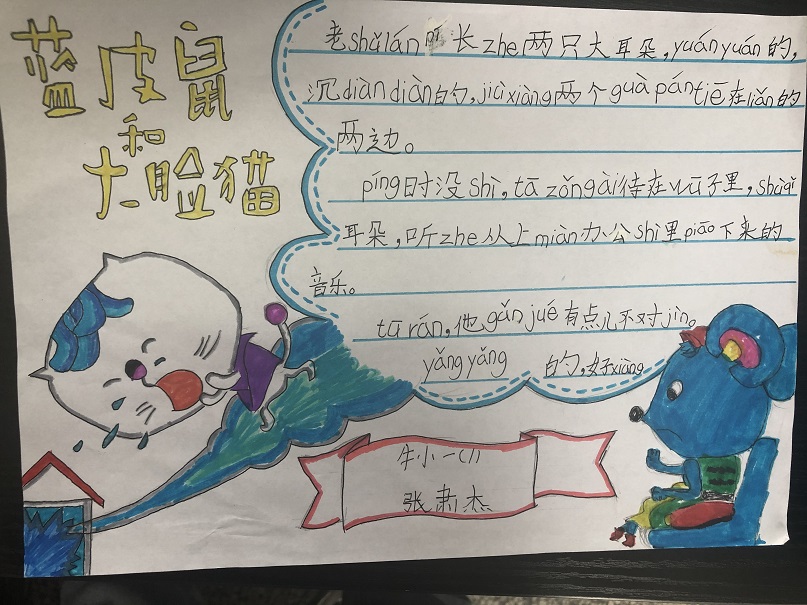 蓝皮鼠
和
大脸猫
老shǔlán 长zhe两只大耳朵,yuányuán的,
沉diàndiàn的,jiùxiàng两个guàpántiē在liǎn的
两边。
píng时没shì,tā zǒngài待在yuàn子里,shùqǐ
耳朵,听zhe从上miàn办公shì里piāo下来的
音乐。
tūrán,他gǎn jué有点儿不对jìn。
yǎngyǎng 的,好xiàng
牛小一(1)
张肃杰